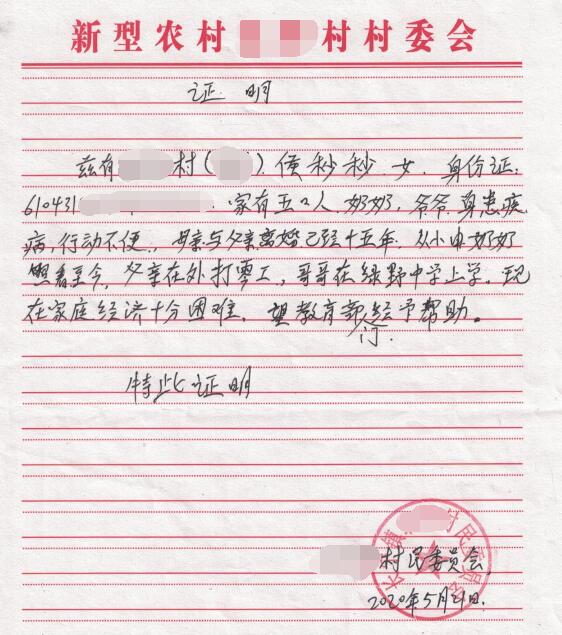 新型农村 村村委会
证 明
兹有 村( ).侯秒秒.女.身份证:
610431 .家有五口人.奶奶,爷爷身患疾
病,行动不便.,母亲与父亲离婚已经十五年.从小由奶奶
照看至今,父亲在外打零工,哥哥在绿野中学上学.现
在家庭经济十分困难.望教育部给予帮助。
门.
特此证明
村民委员会
村民委员会
2020年5月21日.